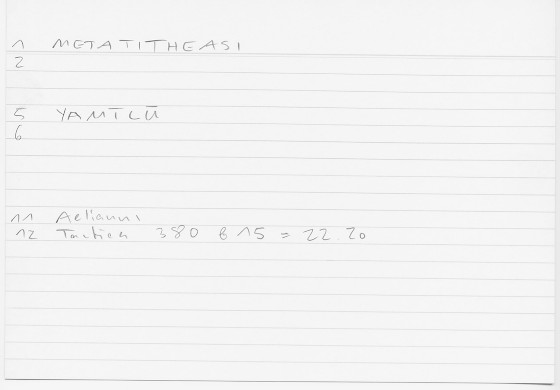 1 METATITHEASI
2
5 YAMĪLŪ
6
11 Aelianni
12 Tactica 380 B 15 = 22.20